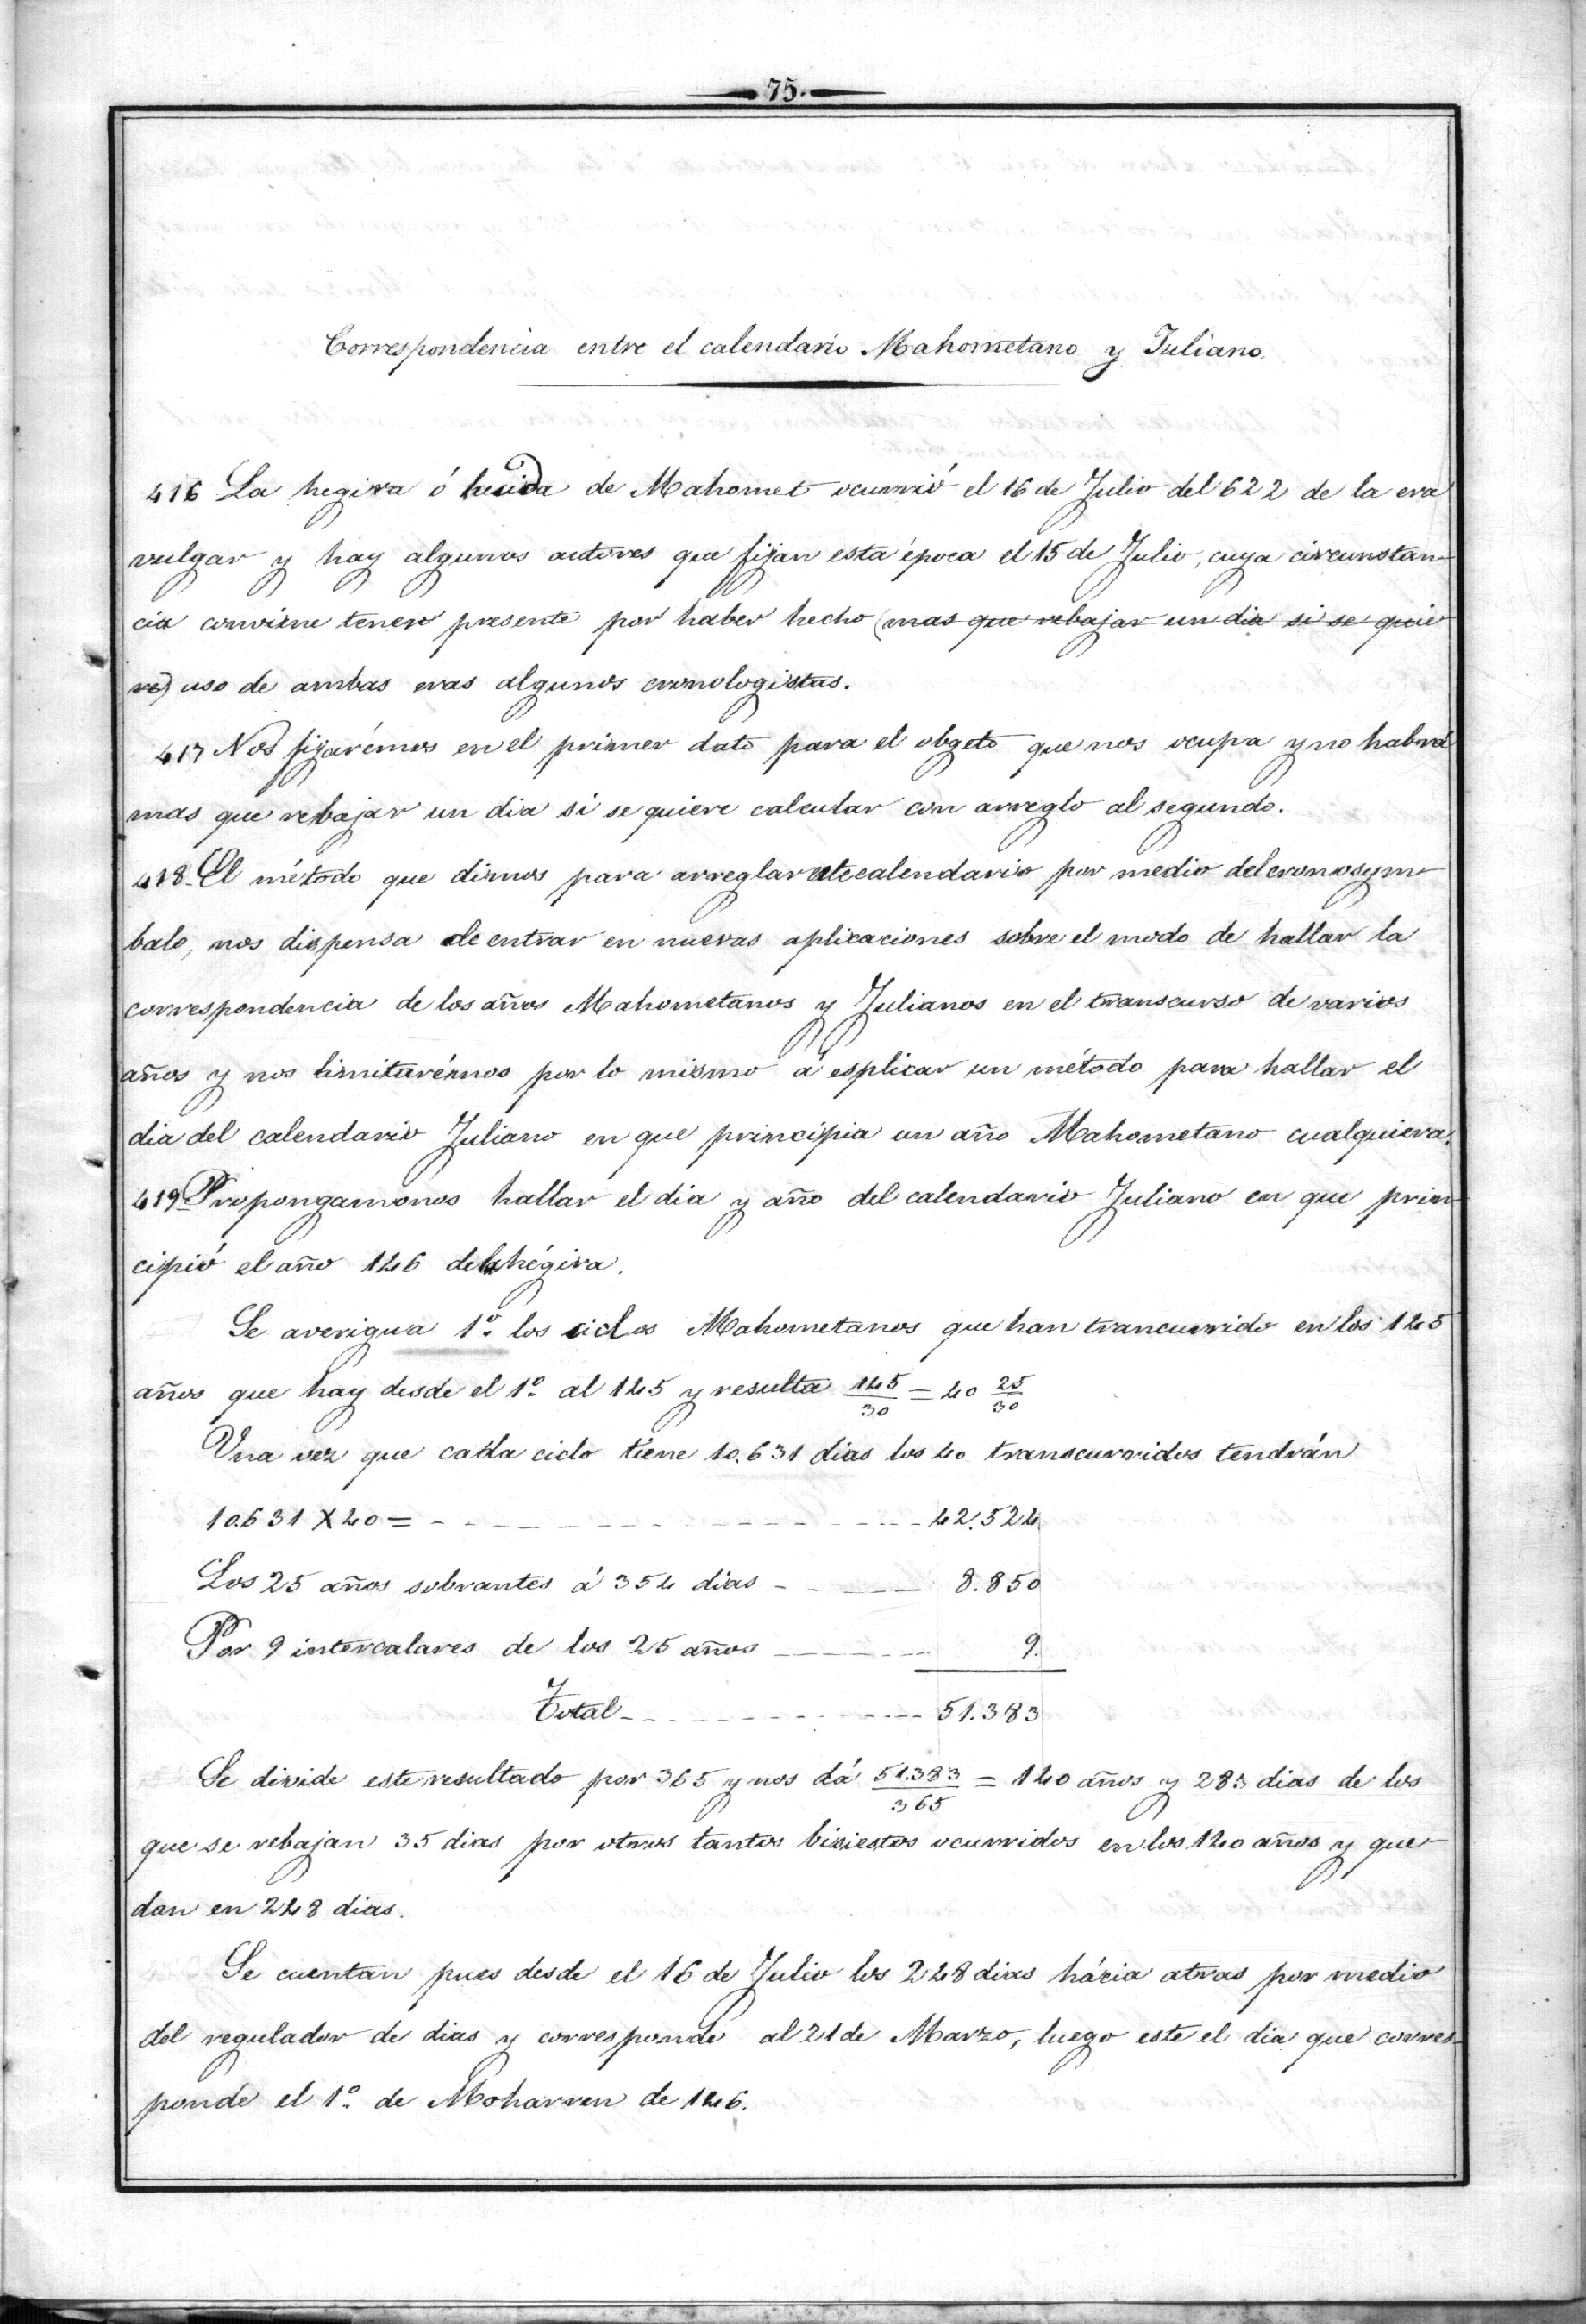 75.
Correspondencia entre el calendario Mahometano y Juliano.
416 La hegira ó huida de Mahomet ocurrió el 16 de Julio del 622 de la era
vulgar y hay algunos autores que fijan esta época el 15 de Julio, cuya circunstan-
cia conviene tener presente por haber hecho (mas que rebajar un dia si se quie
re) uso de ambas eras algunos cronologistas.
417 Nos fijarémos en el primer dato para el obgeto que nos ocupa y no habrá
mas que rebajar un dia si se quiere calcular con arreglo al segundo.
418. El método que dimos para arreglar este calendario por medio del cronosym-
balo, nos dispensa de entrar en nuevas aplicaciones sobre el modo de hallar la
correspondencia de los años Mahometanos y Julianos en el transcurso de varios
años y nos limitarémos por lo mismo á esplicar un método para hallar el
dia del calendario Juliano en que principia un año Mahometano cualquiera.
419 Propongamonos hallar el dia y año del calendario Juliano en que prin-
cipió el año 146 de la hégira.
Se averigua 1º los ciclos Mahometanos que han trancurrido en los 145
años que hay desde el 1º al 145 y resulta 145/30 = 40 25/30
Una vez que cada ciclo tiene 10.631 dias los 40 transcurridos tendrán
10.631 X 40 = 42.524
Los 25 años sobrantes á 354 dias 8.850
Por 9 intercalares de los 25 años 9.
Total 51.383
Se divide este resultado por 365 y nos dá 51.383/365 = 140 años y 283 dias de los
que se rebajan 35 dias por otros tantos bisiestos ocurridos en los 140 años y que-
dan en 248 dias.
Se cuentan pues desde el 16 de Julio los 248 dias hácia atras por medio
del regulador de dias y corresponde al 21 de Marzo, luego este el dia que corres-
ponde el 1º de Moharren de 146.